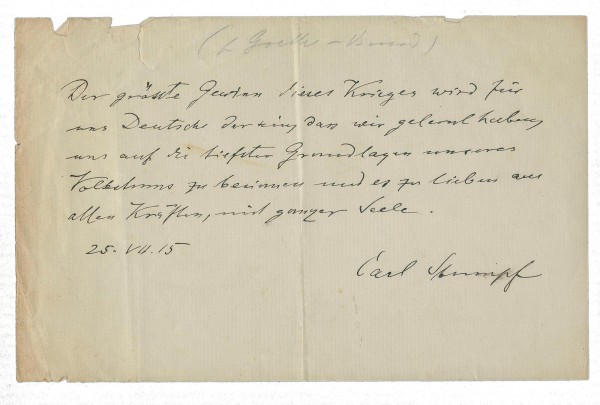 (f. Goethe-Bund)
Der grösste Gewinn dieses Krieges wird für
uns Deutsche der sein, dass wir gelernt haben,
uns auf die tiefsten Grundlagen unseres
Volkstums zu besinnen und es zu lieben aus
allen Kräften, mit ganzer Seele.
25. VII. 15
Carl Stumpf